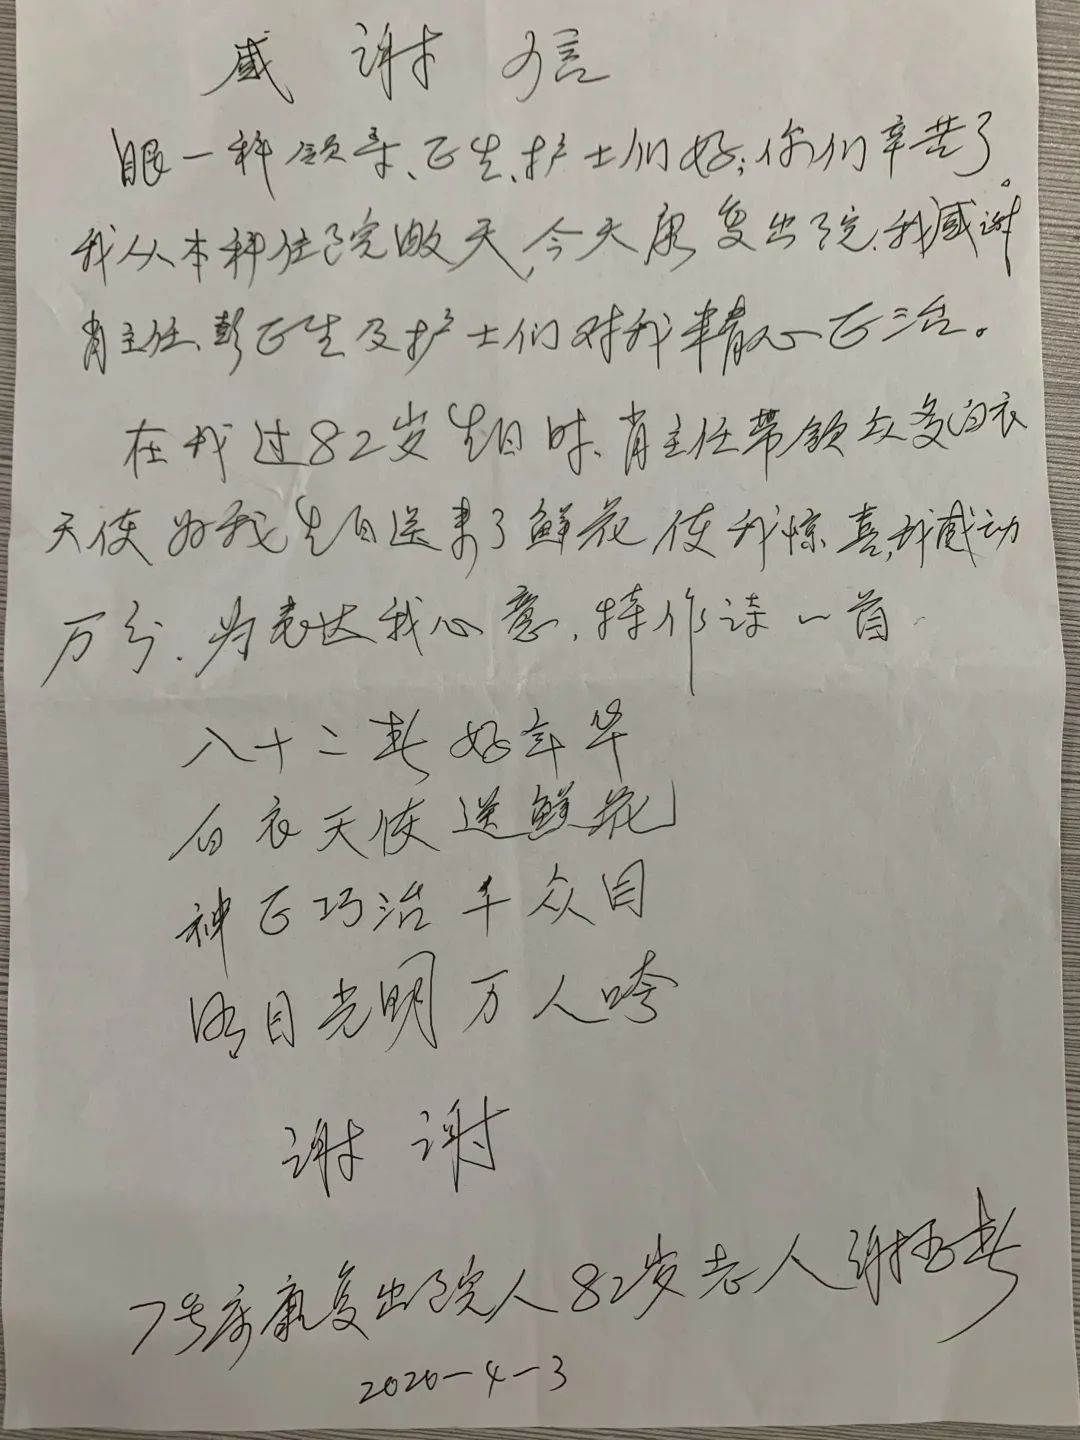 感谢信
眼一科领导、医生、护士们好;你们辛苦了。
我从本科住院数天,今天康复出院,我感谢
肖主任、彭医生及护士们对我精心医治。
在我过82岁生日时、肖主任带领众多白衣
天使为我生日送来了鲜花使我惊喜,我感动
万分、为表达我心意,特作诗一首
八十二春好年华
白衣天使送鲜花
神医巧治千众目
明目光明万人夸
谢谢
7号床康复出院人82岁老人谢玉春
2020-4-3